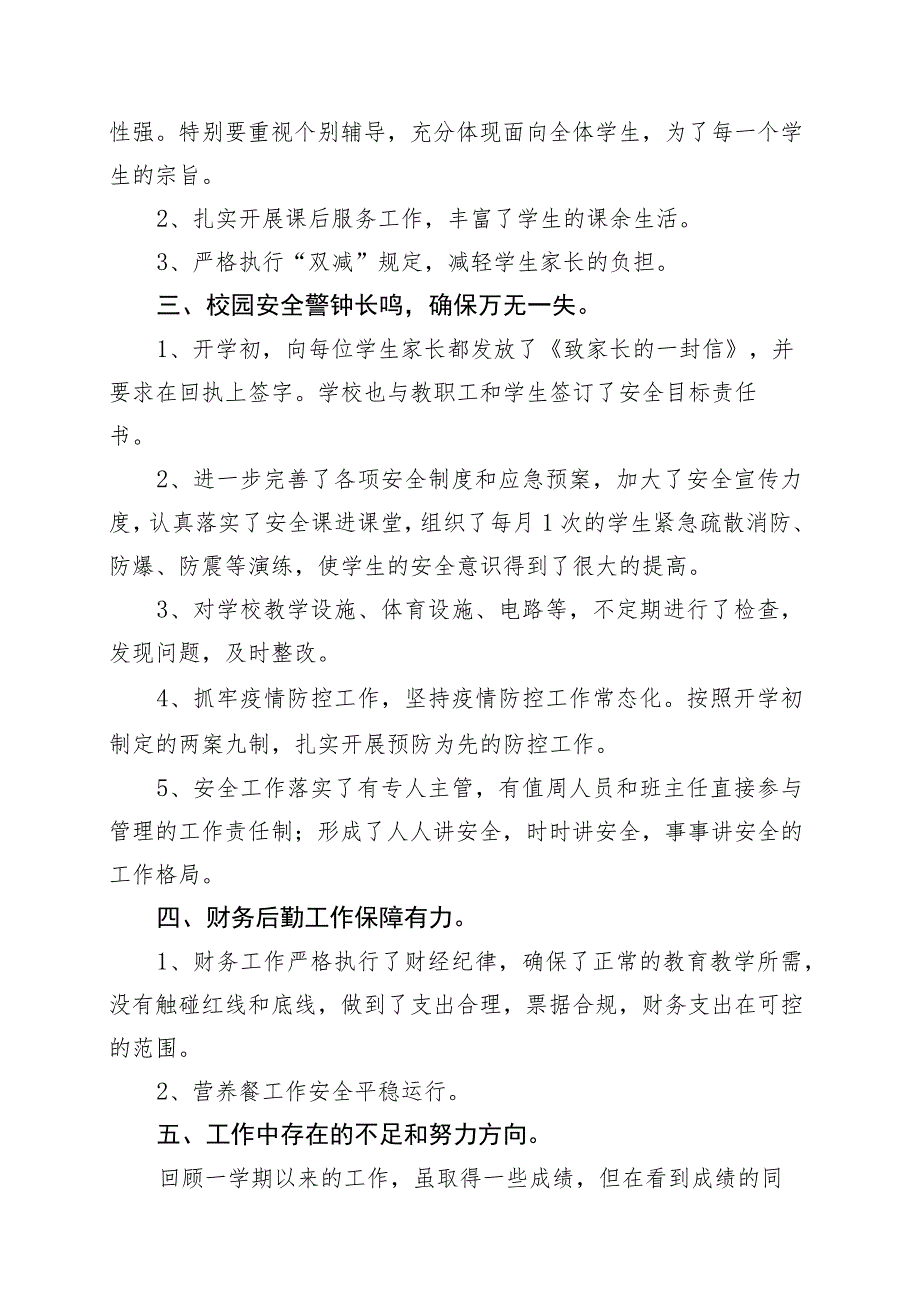 性强。特别要重视个别辅导，充分体现面向全体学生，为了每一个学
生的宗旨。
2、扎实开展课后服务工作，丰富了学生的课余生活。
3、严格执行“双减”规定，减轻学生家长的负担。
三、校园安全警钟长鸣，确保万无一失。
1、开学初，向每位学生家长都发放了《致家长的一封信》，并
要求在回执上签字。学校也与教职工和学生签订了安全目标责任
书。
2、进一步完善了各项安全制度和应急预案，加大了安全宣传力
度，认真落实了安全课进课堂，组织了每月1次的学生紧急疏散消防、
防爆、防震等演练，使学生的安全意识得到了很大的提高。
3、对学校教学设施、体育设施、电路等，不定期进行了检查，
发现问题，及时整改。
4、抓牢疫情防控工作，坚持疫情防控工作常态化。按照开学初
制定的两案九制，扎实开展预防为先的防控工作。
5、安全工作落实了有专人主管，有值周人员和班主任直接参与
管理的工作责任制；形成了人人讲安全，时时讲安全，事事讲安全的
工作格局。
四、财务后勤工作保障有力。
1、财务工作严格执行了财经纪律，确保了正常的教育教学所需，
没有触碰红线和底线，做到了支出合理，票据合规，财务支出在可控
的范围。
2、营养餐工作安全平稳运行。
五、工作中存在的不足和努力方向。
回顾一学期以来的工作，虽取得一些成绩，但在看到成绩的同